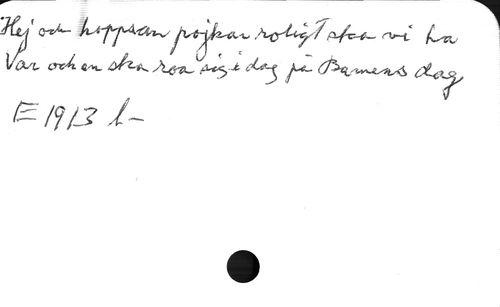 Hej och hoppsan pojkar roligt ska vi ha
Var och en ska roa sig i dag på Barnens dag
E 1913 h-